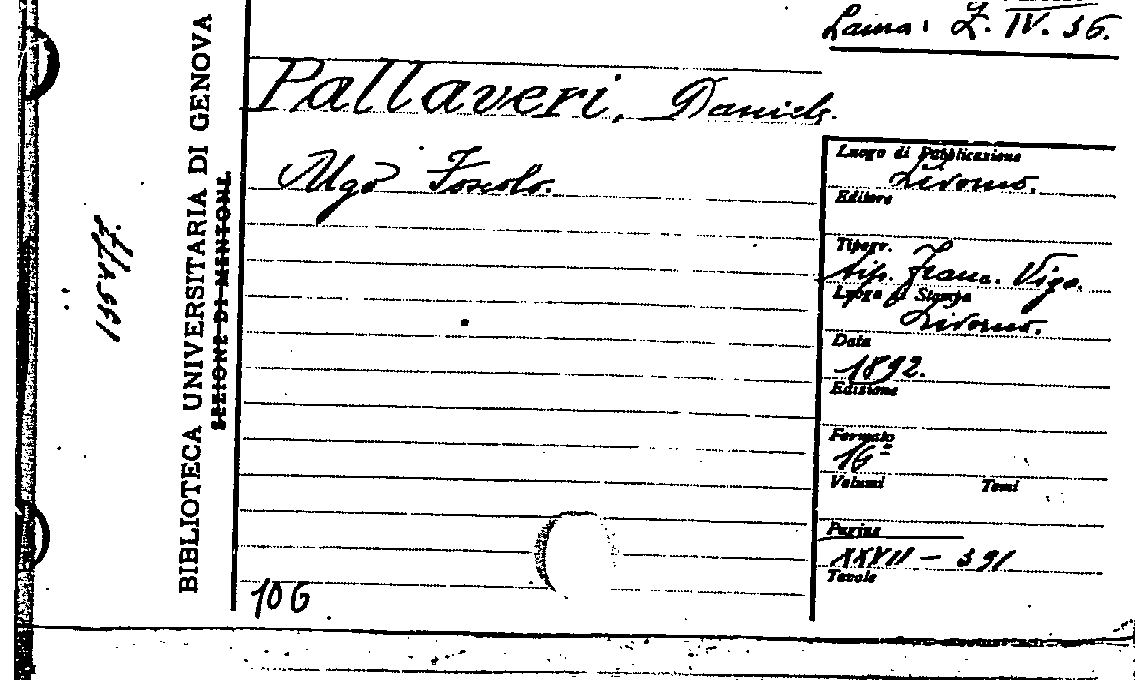 Lama: Z. IV. 36.
Pallaveri, Daniele.
Ugo Foscolo.
BIBLIOTECA UNIVERSITARIA DI GENOVA
Luogo di Pubblicazione
Livorno.
Editore
Tipogr.
tip. Franc. Vigo.
Luogo di Stampa
Livorno.
Data
1892.
Edizione
Formato
16º
Volumi Tomi
Pagine
XXVII - 391
Tavole
106